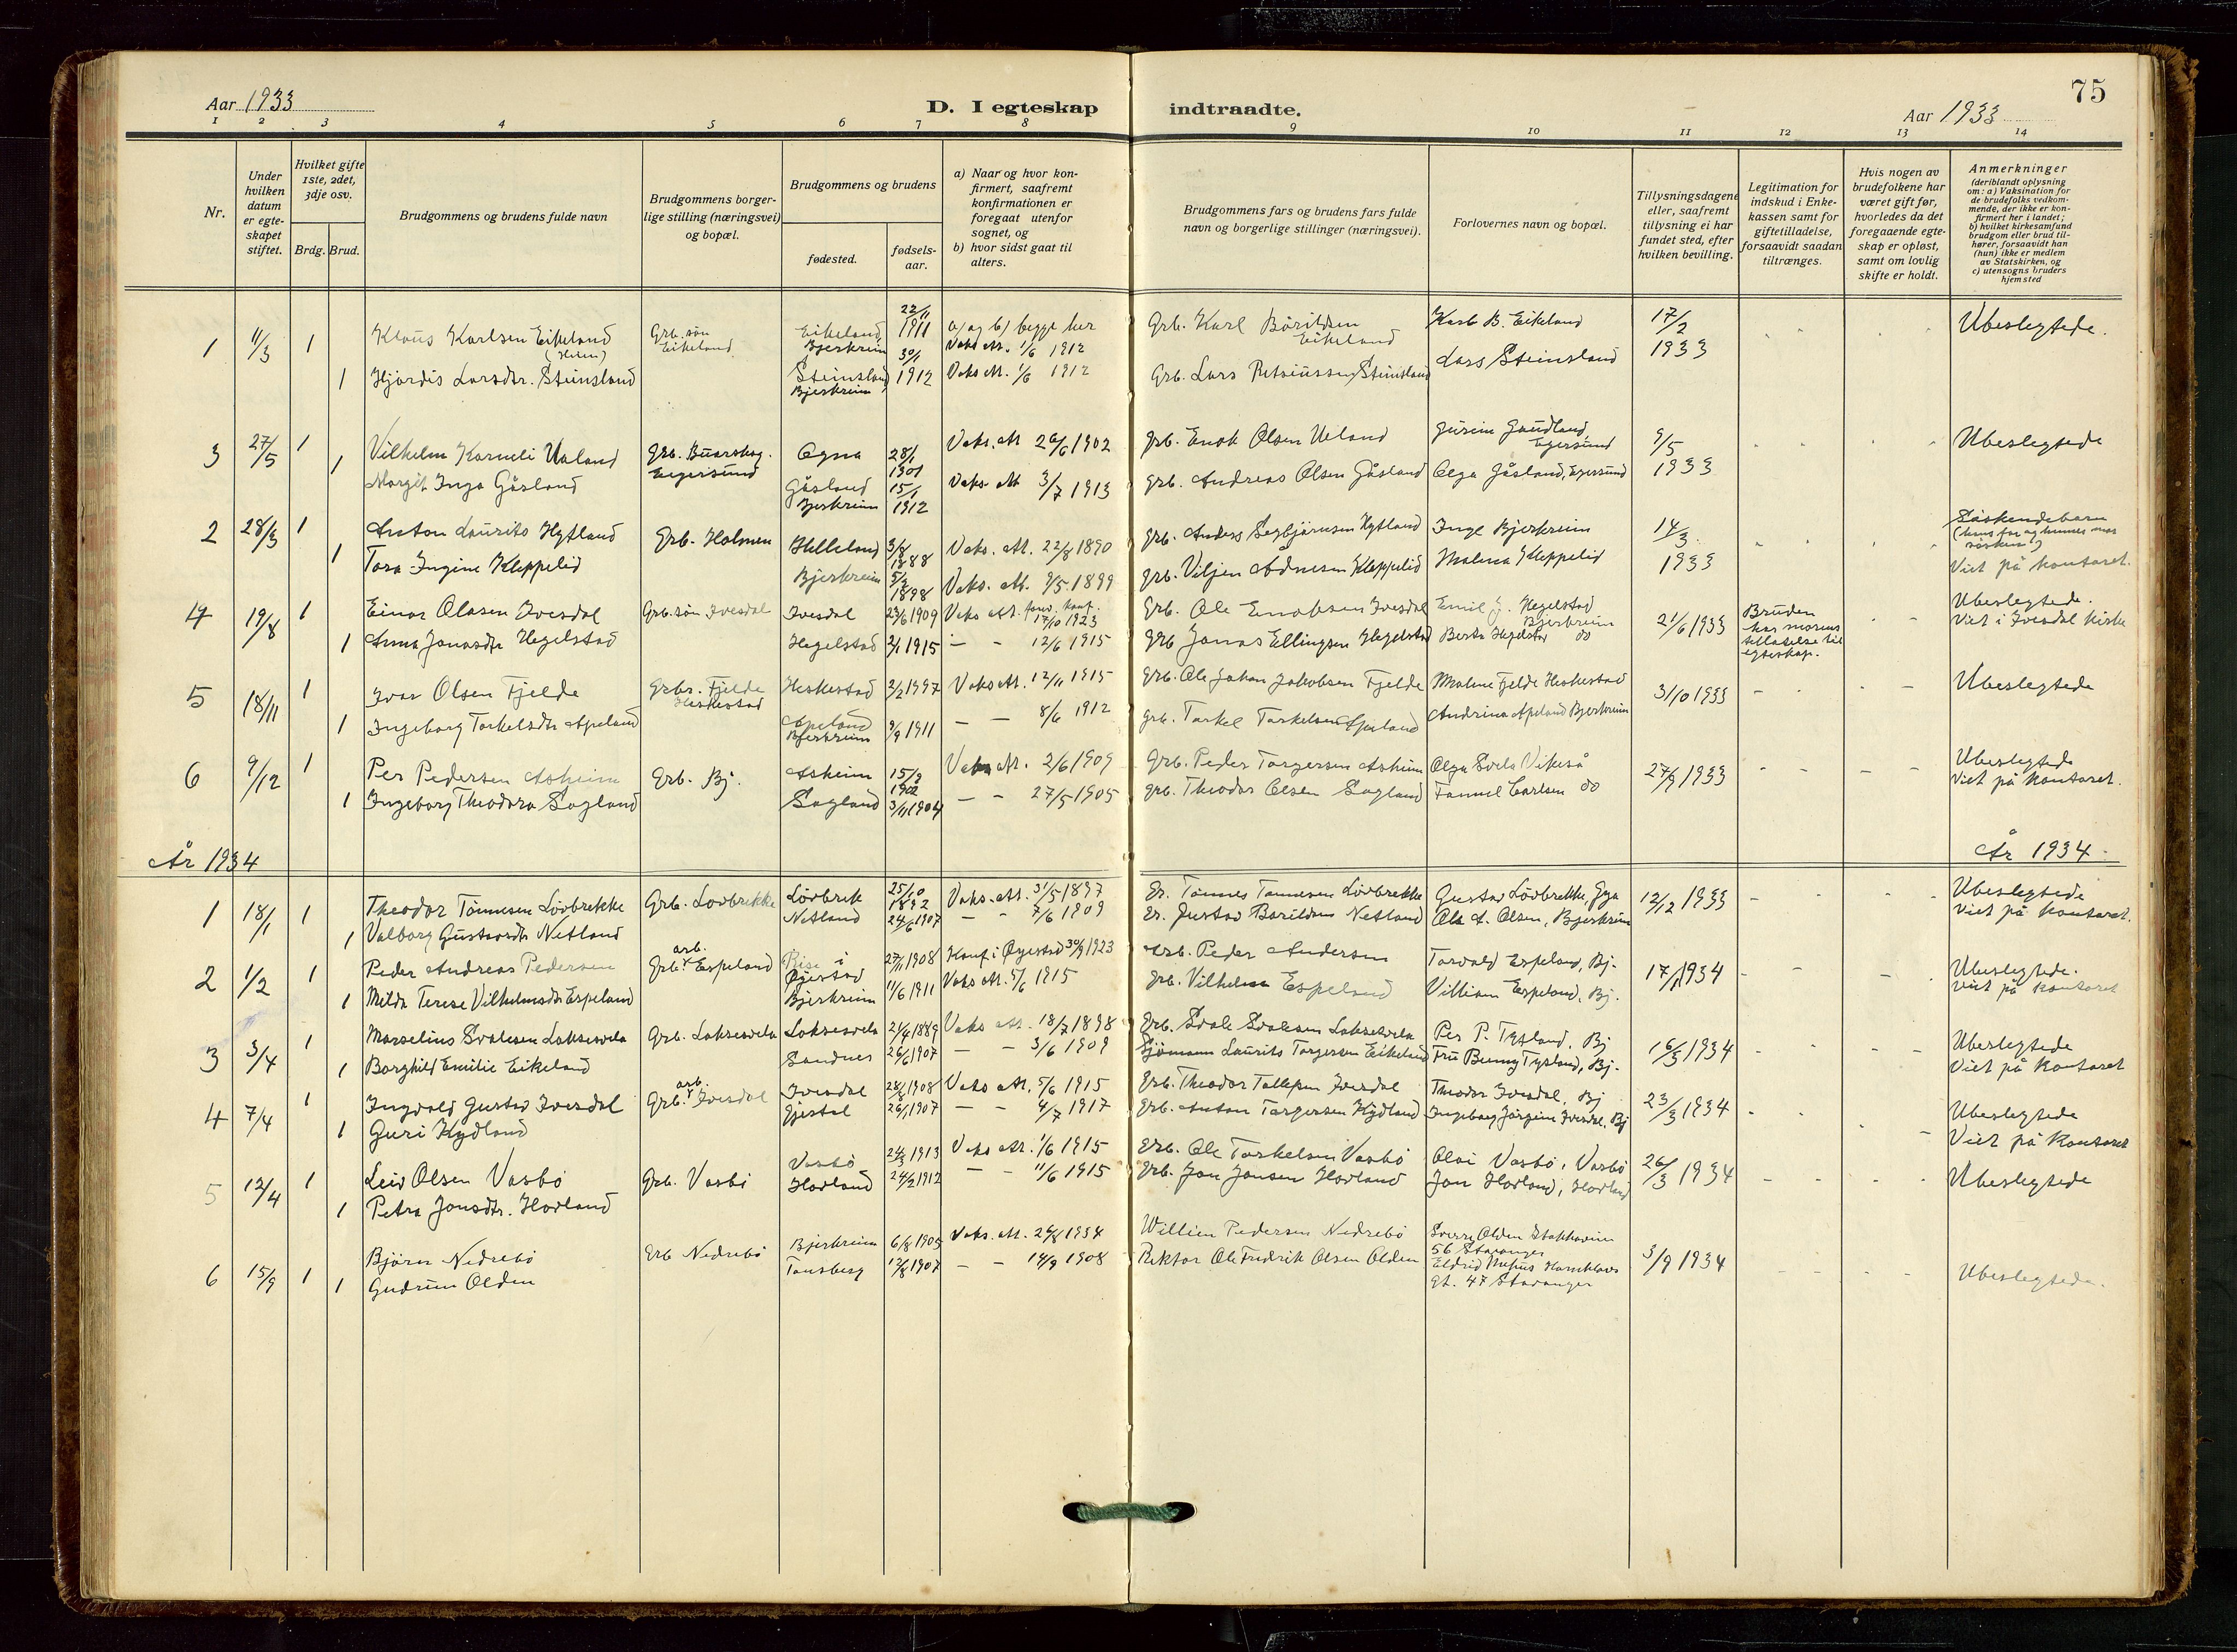 75
Aar 1933
D. I egteskap
indtraadte.
Aar 1933
1 2 3 4 5 6 7 8 9 10 11 12 13 14
Nr.
Under hvilken datum er egteskapet stiftet.
Hvilket gifte 1ste, 2det, 3dje osv.
Brdg. Brud.
Brudgommens og brudens fulde navn
Brudgommens borgerlige stilling (næringsvei) og bopæl.
Brudgommens og brudens
fødested.
fødselsaar.
a) Naar og hvor konfirmert, saafremt konfirmationen er foregaat utenfor sognet, og
b) hvor sidst gaat til alters.
Brudgommens fars og brudens fars fulde navn og borgerlige stillinger (næringsvei).
Forlovernes navn og bopæl.
Tillysningsdagene eller, saafremt tillysning ei har fundet sted, efter hvilken bevilling.
Legitimation for indskud i Enkekassen samt for giftetilladelse, forsaavidt saadan tiltrænges.
Hvis nogen av brudefolkene har været gift før, hvorledes da det foregaaende egteskap er opløst, samt om lovlig skifte er holdt.
Anmerkninger
(deriblandt oplysning om: a) Vaksination for de brudefolks vedkommende, der ikke er konfirmert her i landet; b) hvilket kirkesamfund brudgom eller brud tilhører, forsaavidt han (hun) ikke er medlem av Statskirken, og c) utensogns bruders hjemsted
1 11/3 1 Klaus Karlsen Eikeland Grb. søn Eikeland Eikeland Bjerkreim 22/11 1911 a) og b) begge her Vaks att. 1/6 1912 Grb. Karl Bårildsen Eikeland Karl B. Eikeland 17/2 1933 Ubeslegtede.
1 Hjørdis Larsdtr. Steinsland Steinsland Bjerkreim 30/1 1912 Vaks att. 1/6 1912 Grb. Lars Steinsland Lars Steinsland
3 27/5 1 Vilhelm Korneli Ueland Grb. Egersund Ogna 28/1 1901 Vaks. att 26/6 1902 Grb. Enok Olsen Ueland Egersund 9/5 1933 Ubeslegtede
1 Margit Inga Gåsland Gåsland Bjerkreim 15/1 1912 Vaks. att 3/7 1913 Grb. Andreas Olsen Gåsland Olga Gåsland, Egersund
2 28/3 1 Anton Laurits Hytland Grb. Holmen Helleland 3/8 1888 Vaks. att. 22/8 1890 Grb. Anders Hytland Inge Bjerkreim 14/3 1933 Søskendebarn
1 Tora Ingine Kleppelid Bjerkreim 5/2 1898 Vaks. att. 9/5 1899 Grb. Viljen Ådnesen Kleppelid Malena Kleppelid Viet på kontoret.
4 19/8 1 Einar Olasen Ivesdal Grb. søn Ivesdal Ivesdal 23/6 1909 Vaks att. konf. 17/10 1923 Grb. Ole Enoksen Ivesdal Emil J. Hegelstad Bjerkreim 21/6 1933 Bruden har morens tillatelse til egteskap. Ubeslegtede.
1 Anna Jonasdtr Hegelstad Hegelstad 2/1 1915 — - 12/6 1915 Grb Jonas Ellingsen Hegelstad Berta Hegelstad do Viet i Ivesdal kirke
5 18/11 1 Ivar Olsen Fjelde Grbr. Fjelde Heskestad Heskestad 2/2 1997 Vaks att. 12/11 1915 Grb. Ole Johan Jakobsen Fjelde Malene Fjelde Heskestad 3/10 1933 Ubeslegtede
1 Ingeborg Torkelsdtr Apeland Apeland Bjerkreim 9/9 1911 — - 8/6 1912 Grb. Torkel Torkelsen Apeland Andrina Apeland Bjerkreim
6 9/12 1 Per Pedersen Asheim Grb. Bj. Asheim 15/2 1902 Vaks att. 2/6 1909 Grb. Peder Torgersen Asheim Olga Svela Vikeså 27/9 1933 Ubeslegtede
1 Ingeborg Theodora Sagland Sagland 3/11 1904 — - 27/5 1905 Grb. Theodor Olsen Sagland Carlsen do Viet på kontoret.
År 1934
År 1934.
1 18/1 1 Theodor Tønnesen Lovbrekke Grb. Lovbrekke Lovbrek 25/10 1892 Vaks. att. 31/5 1897 Gr. Tønnes Tønnesen Lovbrekke Gustav Lovbrekke, Gya 12/12 1933 Ubeslegtede
1 Valborg Gustavsdtr Netland Netland 24/6 1907 — - 7/6 1909 Gr. Gustav Borildsen Netland Ole A. Olsen, Bjerkreim Viet på kontoret.
2 1/2 1 Peder Andreas Pedersen Grb. arb. Espeland i Øyestad 27/11 1908 Konf i Øyestad 30/9 1923 Arb. Peder Andersen Torvald Espeland, Bj. 17/1 1934 Ubeslegtede.
1 Milda Terese Vilhelmsdtr Espeland Bjerkreim 11/6 1911 Vaks att. 5/6 1915 Grb. Vilhelm Espeland Villiam Espeland, Bj. Viet på kontoret
3 3/4 1 Marselius Svalesen Laksesvela Grb. Laksesvela Laksesvela 21/4 1889 Vaks att. 18/7 1898 Grb. Svale Svalesen Laksesvela Per P. Tysland, Bj 16/3 1934 Ubeslegtede
1 Borghild Emilie Eikeland Sandnes 26/6 1907 — - 3/6 1909 Sjømann Laurits Torgersen Eikeland Fru Benny Tysland, Bj. Viet på kontoret
4 7/4 1 Ingvald Gustav Ivesdal Grb. arb. Ivesdal Ivesdal 28/8 1908 Vaks att. 5/6 1915 Grb. Theodor Tollefsen Ivesdal Theodor Ivesdal, Bj 23/3 1934 Ubeslegtede
1 Guri Kydland Gjestal 26/1 1907 — - 4/7 1917 Grb. Anton Torgersen Kydland Ingeborg Jørgine Ivesdal, Bj Viet på kontoret
5 12/4 1 Leiv Olsen Vasbø Grb. Vasbø Vasbø 24/3 1913 Vaks att. 1/6 1915 Grb. Ole Torkelsen Vasbø Olai Vasbø, Vasbø 26/3 1934 Ubeslegtede
1 Petra Jonsdtr. Hovland Hovland 24/2 1912 — - 11/6 1915 Grb. Jon Jonsen Hovland Jon Hovland, Hovland
6 15/9 1 Bjørn Nedrebø Grb Nedrebø Bjerkreim 6/8 1905 Vaks. att. 26/8 1934 Willien Pedersen Nedrebø Sverre Olden 56 Stavanger 3/9 1934 Ubeslegtede.
1 Gudrun Olden Tønsberg 12/8 1907 — - 14/9 1908 Rektor Ole Fredrik Olsen Olden Eldrid gt. 47 Stavanger